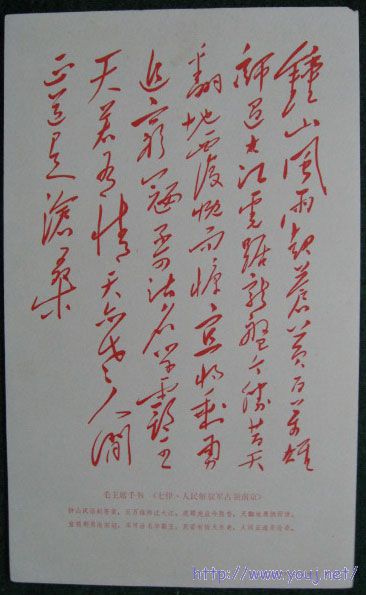 鍾山風雨起蒼黄百萬雄
師過大江虎踞龍盤今勝昔天
翻地覆慨而慷宜将剩勇
追窮寇不可沽名學霸王
天若有情天亦老人間
正道是滄桑
毛主席手书《七律·人民解放军占领南京》
钟山风雨起苍黄，百万雄师过大江。虎踞龙盘今胜昔，天翻地覆慨而慷。
宜将剩勇追穷寇，不可沽名学霸王。天若有情天亦老，人间正道是沧桑。
http://www.youj.net/